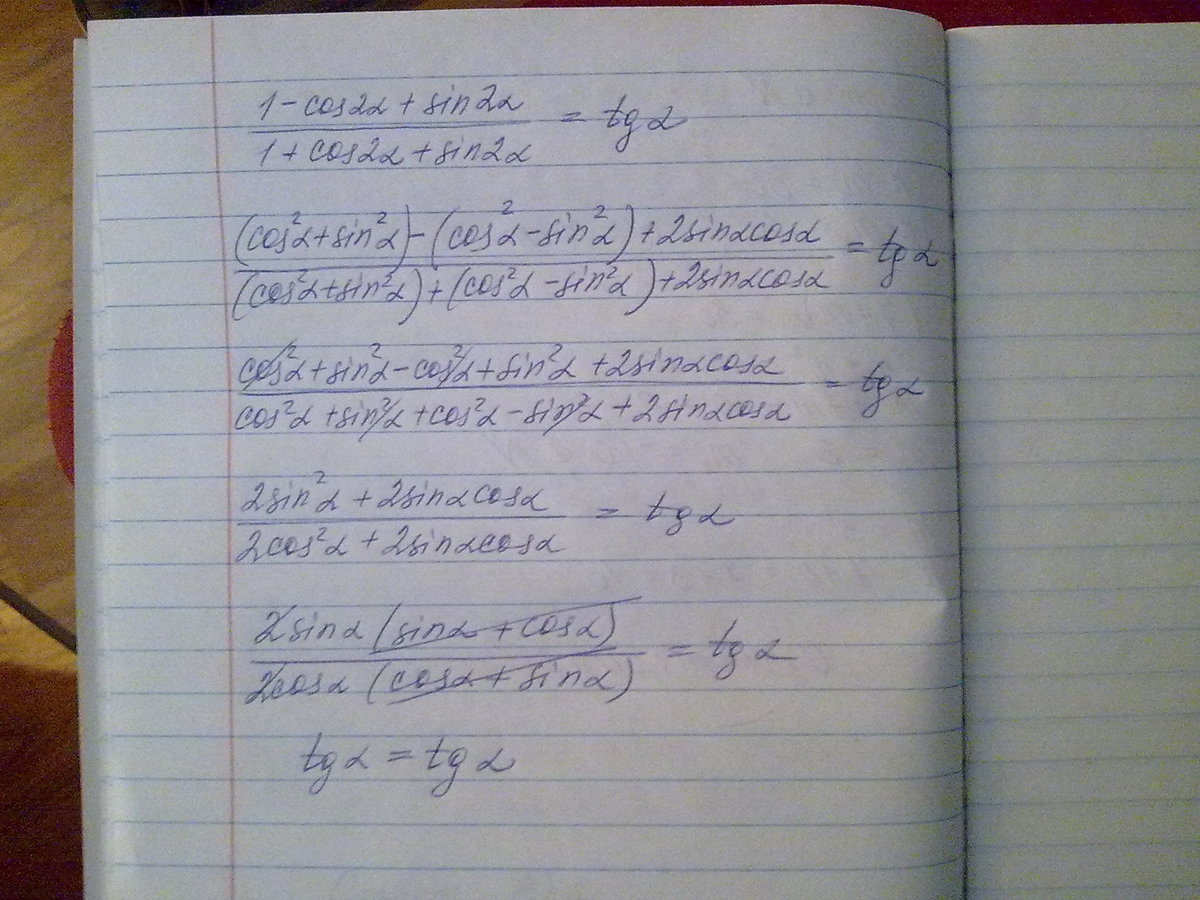 1 - cos2α + sin2α / 1 + cos2α + sin2α = tg α
(cos²α + sin²α) - (cos²α - sin²α) + 2sinαcosα / (cos²α + sin²α) + (cos²α - sin²α) + 2sinαcosα = tg α
cos²α + sin²α - cos²α + sin²α + 2sinαcosα / cos²α + sin²α + cos²α - sin²α + 2sinαcosα = tg α
2sin²α + 2sinαcosα / 2cos²α + 2sinαcosα = tg α
2sinα (sinα + cosα) / 2cosα (cosα + sinα) = tg α
tg α = tg α